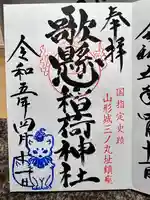 奉拝
国指定史跡
山形城三ノ丸址鎮座
歌懸稲荷神社
令和五年四月十一日